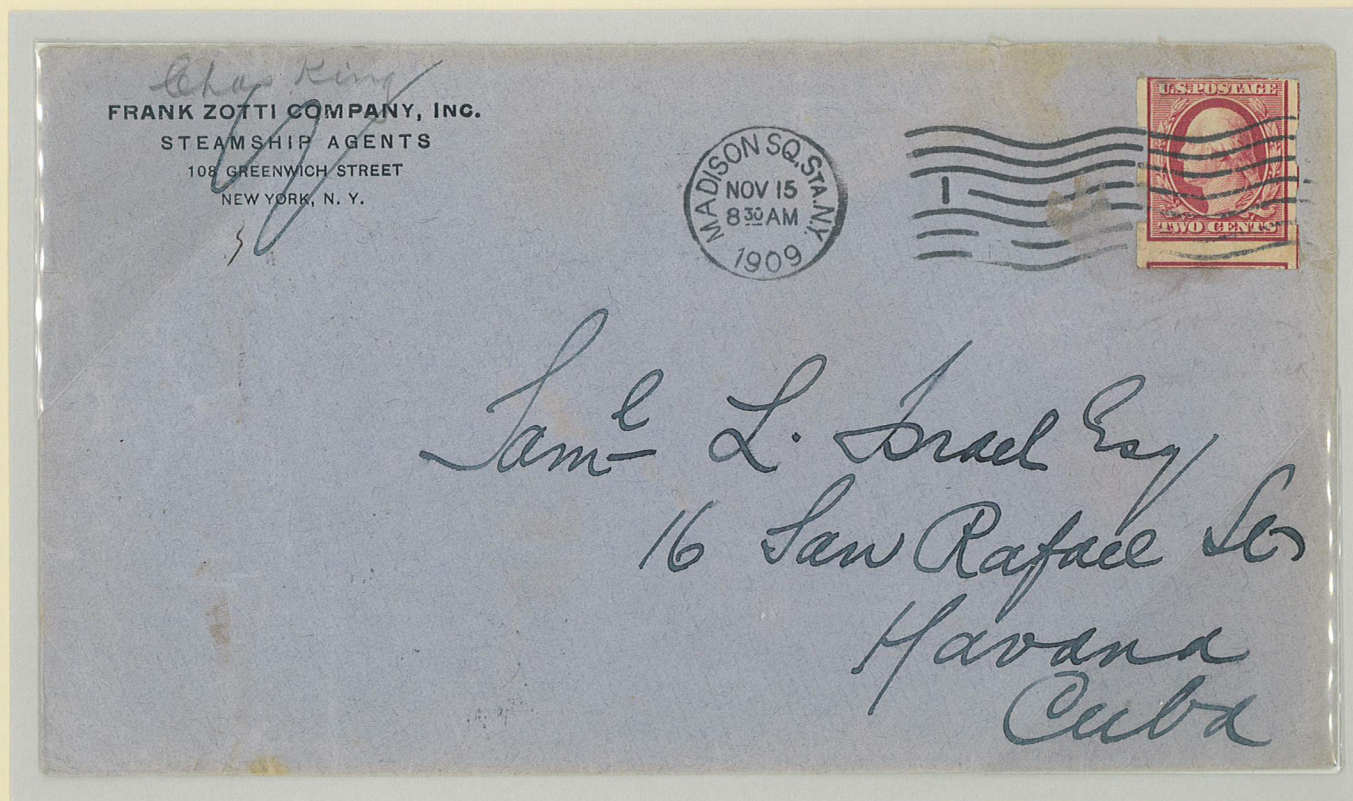 Chas King
FRANK ZOTTI COMPANY, INC.
STEAMSHIP AGENTS
108 GREENWICH STREET
NEW YORK, N. Y.
MADISON SQ. STA. N.Y.
NOV 15
8 30 AM
1909
1
U.S. POSTAGE
TWO CENTS
Saml L. Israel Esq
16 San Rafael St
Havana
Cuba